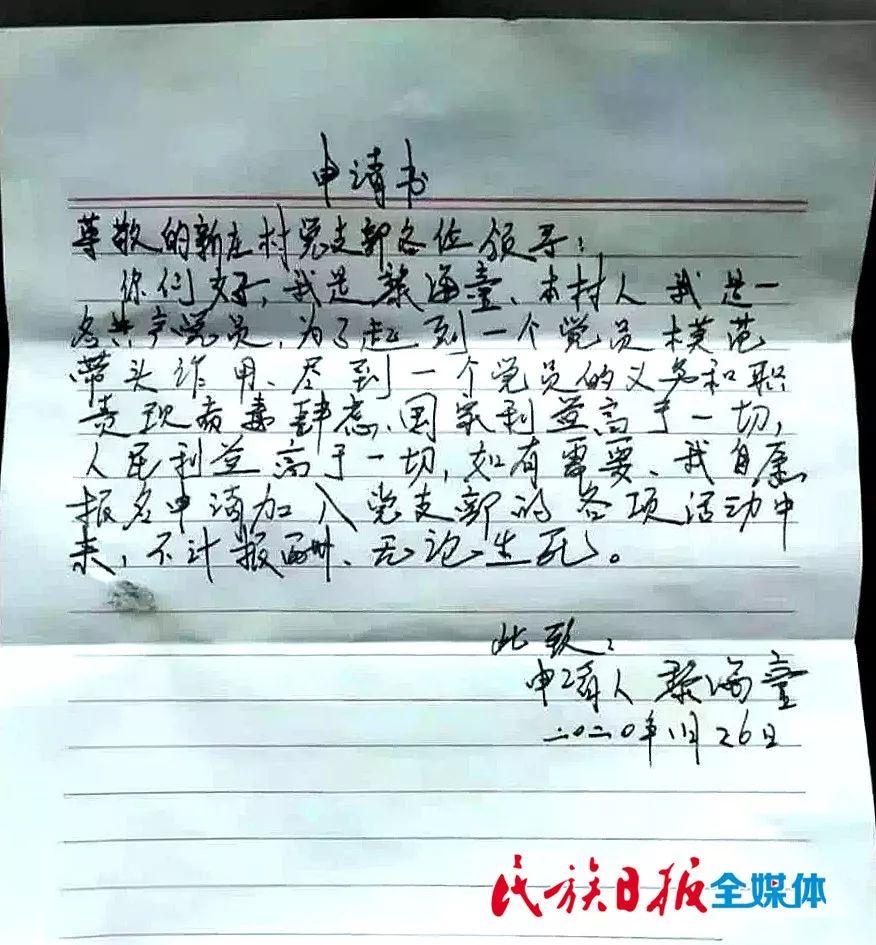 申请书
尊敬的新庄村党支部各位领导:
你们好,我是黎海童、本村人我是一
名共产党员,为了起到一个党员模范
带头作用、尽到一个党员的义务和职
责现病毒肆虐、国家利益高于一切,
人民利益高于一切,如有需要、我自愿
报名申请加入党支部的各项活动中
来,不计报酬、无论生死。
此致:
申请人 海童
二〇二〇年1月26日
民族日报全媒体